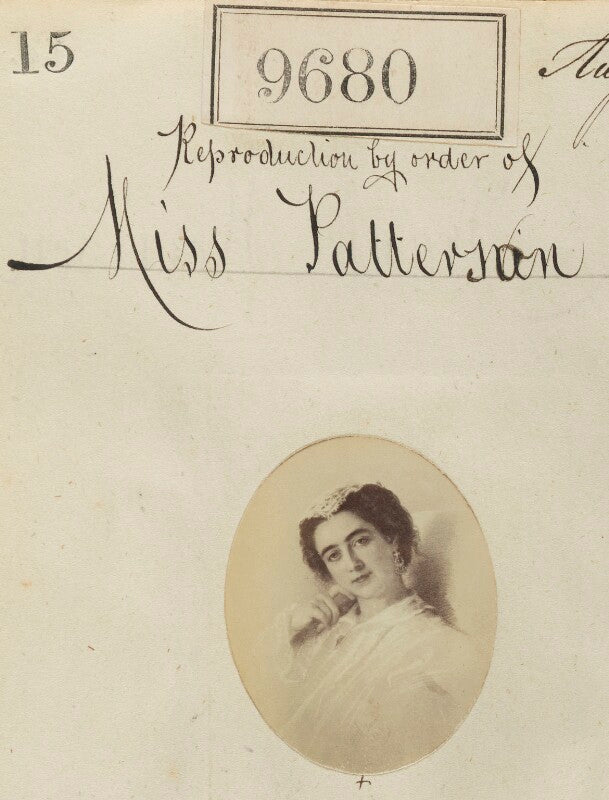 15
9680
Reproduction by order of
Miss Patterson